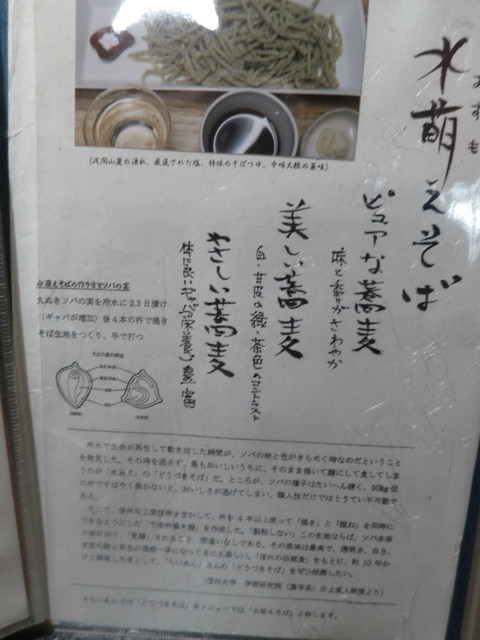 水萌えそば
みずも
ピュアな蕎麦
味と香りがさわやか
美しい蕎麦
白、甘皮の緑、茶色のコントラスト
やさしい蕎麦
体に良いギャバの栄養も豊富
(浅間山麓の湧水、厳選された塩、特性のそばつゆ、辛味大根の薬味)
水萌えそばの作り方とソバの実
丸ぬきソバの実を冷水に2,3日漬け
(ギャバが増加)後4本の杵で搗き
そば生地をつくり、手で打つ
冷水で生命が再生して動き出した瞬間が、ソバの味と色がきらめく時なのだということ
を発見した。その時を逃さず、最もおいしいうちに、そのまま搗いて麺にして食してしま
うのが「水萌え」の「どうづきそば」だ。ところが、ソバの種子はたいへん硬く、50kg位
の杵ですばやく搗かないと、おいしさが逃げてしまい、職人技だけではとうてい不可能で
ある。
そこで、信州の工業技術を生かして、杵を4本以上使って「搗き」と「捏ね」を同時に
できるようにした「千本杵搗き機」を作成した。
(信州大学 学術研究院(農学系)井上直人教授より)
※らいあんでは「どうづきそば」をメニューでは「水萌えそば」と称します。